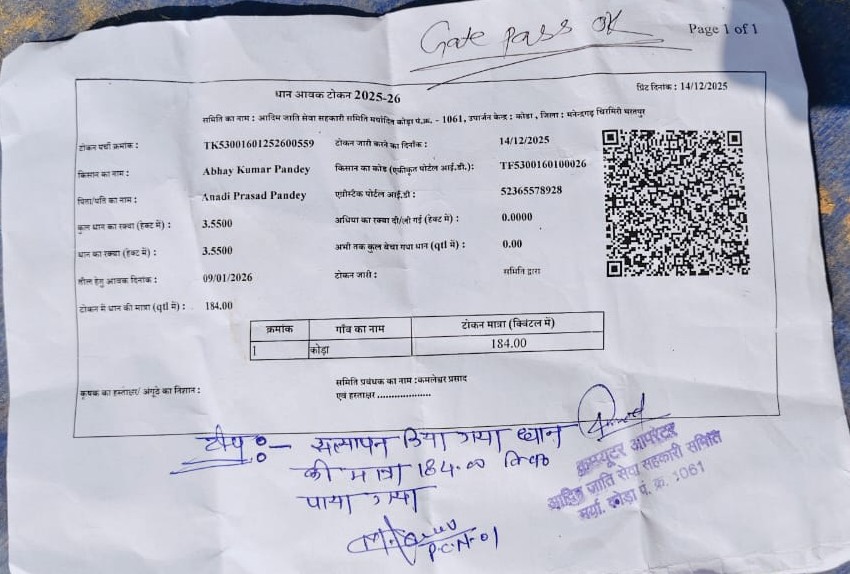 Gate pass ok
Page 1 of 1
धान आवक टोकन 2025-26
प्रिंट दिनांक : 14/12/2025
समिति का नाम : आदिम जाति सेवा सहकारी समिति मर्यादित कोड़ा पं.क्र. - 1061, उपार्जन केन्द्र : कोडा , जिला : मनेन्द्रगढ़ चिरमिरी भरतपुर
टोकन पर्ची क्रमांक : TK53001601252600559 टोकन जारी करने का दिनांक : 14/12/2025
किसान का नाम : Abhay Kumar Pandey किसान का कोड (एकीकृत पोर्टल आई.डी.): TF5300160100026
पिता/पति का नाम : Anadi Prasad Pandey एग्रीस्टेक पोर्टल आई.डी : 52365578928
कुल धान का रकबा (हेक्ट में) : 3.5500 अधिया का रकबा दी/ली गई (हेक्ट में) : 0.0000
धान का रकबा (हेक्ट में) : 3.5500 अभी तक कुल बेचा गया धान (qtl में) : 0.00
तौल हेतु आवक दिनांक : 09/01/2026 टोकन जारी : समिति द्वारा
टोकन में धान की मात्रा (qtl में) : 184.00
क्रमांक गाँव का नाम टोकन मात्रा (क्विंटल में)
1 कोड़ा 184.00
कृषक का हस्ताक्षर/ अंगूठे का निशान :
समिति प्रबंधक का नाम :कमलेश्वर प्रसाद
एवं हस्ताक्षर ..................
टीप :- सत्यापन किया गया ध्यान
की मात्रा 184.00 क्विं०
पाया गया
P.C.N-01
कम्प्यूटर आपरेटर
आदिम जाति सेवा सहकारी समिति
मर्या. कोड़ा पं. क्र. 1061